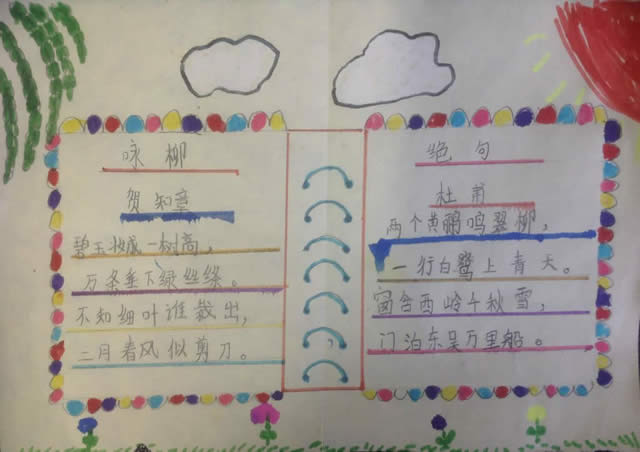 咏柳
贺知章
碧玉妆成一树高，
万条垂下绿丝绦。
不知细叶谁裁出，
二月春风似剪刀。
绝句
杜甫
两个黄鹂鸣翠柳，
一行白鹭上青天。
窗含西岭千秋雪，
门泊东吴万里船。